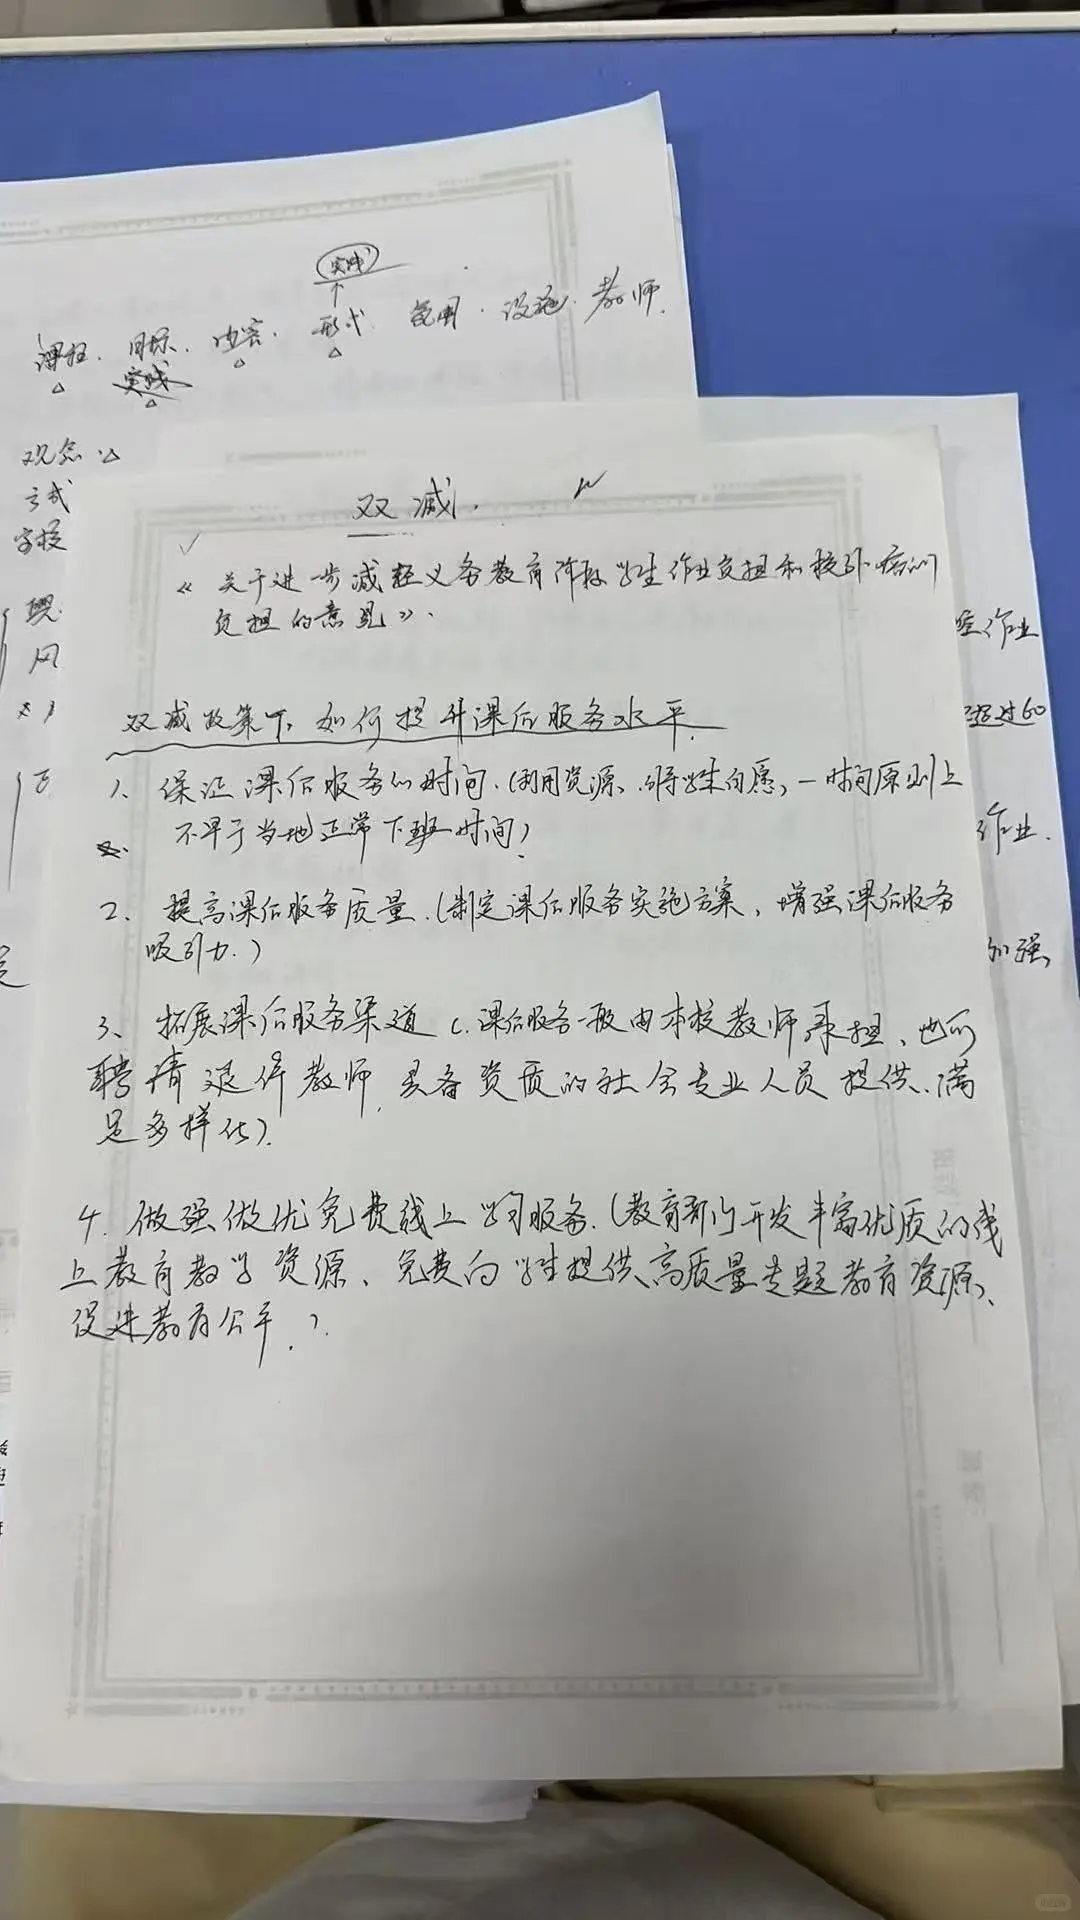 实践
课程. 目标. 内容. 形式. 范围. 设施. 教师.
实践
观念.
方式
学校
双减.
《关于进一步减轻义务教育阶段学生作业负担和校外培训
负担的意见》.
双减政策下, 如何提升课后服务水平
1、保证课后服务的时间.(利用资源、 学生自愿, 一时间原则上
不早于当地正常下班时间)
2、提高课后服务质量.(制定课后服务实施方案、增强课后服务
吸引力.)
3、拓展课后服务渠道(.课后服务一般由本校教师承担、也可
聘请退休教师, 具备资质的社会专业人员提供、满
足多样化).
4. 做强做优免费线上学习服务.(教育部门开发丰富优质的线
上教育教学资源、免费向学生提供高质量专题教育资源、
促进教育公平.).
作业
超过60
作业.
加强,